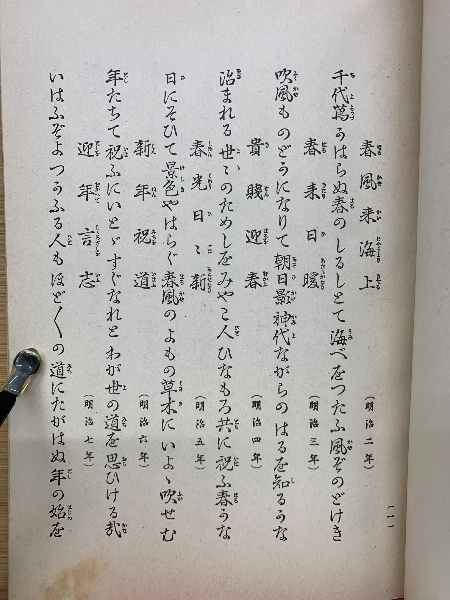 春風来海上 (明治二年)
千代萬かはらぬ春のしるしとて海べをつたふ風ぞのどけき
春来日暖 (明治三年)
吹風ものどかになりて朝日影神代ながらのはるを知るかな
貴賤迎春 (明治四年)
治まれる世〻のためしをみやこ人ひなもろ共に祝ふ春かな
春光日〻新 (明治五年)
日にそひて景色やはらぐ春風のよもの草木にいよゝ吹せむ
新年祝道 (明治六年)
年たちて祝ふにいとゞすぐなれとわが世の道を思ひける哉
迎年言志 (明治七年)
いはふぞよつかふる人もほど〳〵の道にたがはぬ年の始を
(一)